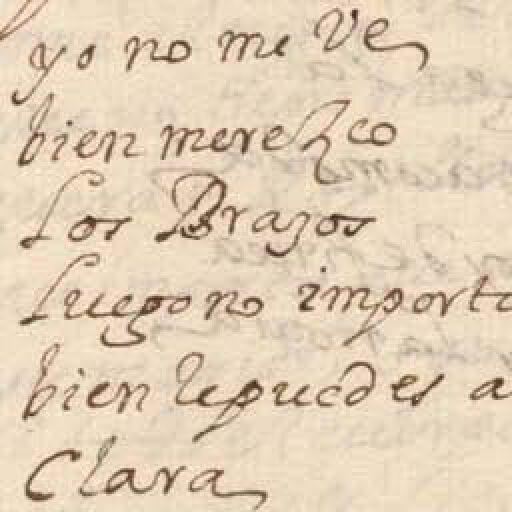 yo no me Ve
bien merezco
Los Brazos
Luego no importa
bien le puedes a
Clara